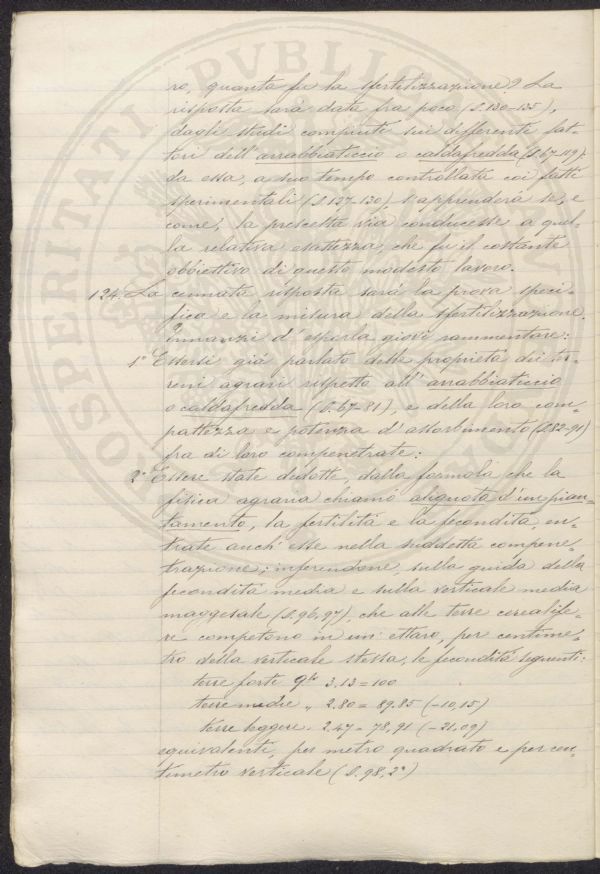 ro, quanta fu la sfertilizzazione? La
risposta sarà data fra poco (§.130=135),
dagli studi compiuti sui differenti fat=
tori dell'arrabbiaticcio o caldafredda (§.67-119):
da essa, a suo tempo controllata coi fatti
sperimentali (§.127-130), s'apprenderà se, e
come, la prescelta via conducesse a quel=
la relativa esattezza, che fu il costante
obbiettivo di questo modesto lavoro.
124. La cennata risposta sarà la prova speci=
fica e la misura della sfertilizzazione.
Innanzi d'esporla giovi rammentare:
1° Essersi già parlato delle proprietà dei ter=
reni agrari rispetto all'arrabbiaticcio
o caldafredda (§.67-81), e della loro com=
pattezza e potenza d'assorbimento (§.82-91)
fra di loro compenetrate:
2° Essere state dedotte, dalla formola che la
fisica agraria chiamò aliquota d'un pian=
tamento, la fertilità e la fecondità, en=
trate anch'esse nella suddetta compene=
trazione; inferendone, sulla guida della
fecondità media e sulla verticale media
maggesale (§.96,97), che alle terre cerealife=
re competono in un'ettaro, per centime=
tro della verticale stessa, le fecondità seguenti:
terre forti qli 3.13=100
terre medie „ 2.80= 89.85 (-10,15)
terre leggere. 2.47= 78,91 (-21,09)
equivalenti, per metro quadrato e per cen=
timetro verticale (§.98,2°)
VOSPERITATI PVBLICAE